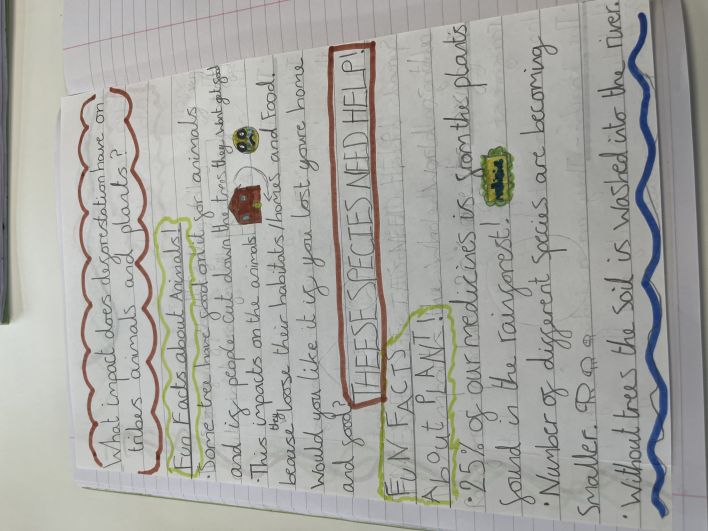 What impact does deforestation have on
tribes animals and plants?
Fun Facts about Animals!
• Some tree have food on it for animals
and if people cut down the trees they wont get food
• This impacts on the animals
because they loose their habitats/homes and Food.
Would you like it if you lost youre home
and food?
THEESE SPECIES NEED HELP!
FUN FACTS
About PLANT!
• 25% of our medicines is from the plants
found is the rainforest!
• Number of different species are becoming
Smaller.
• Without trees the soil is washed into the river.